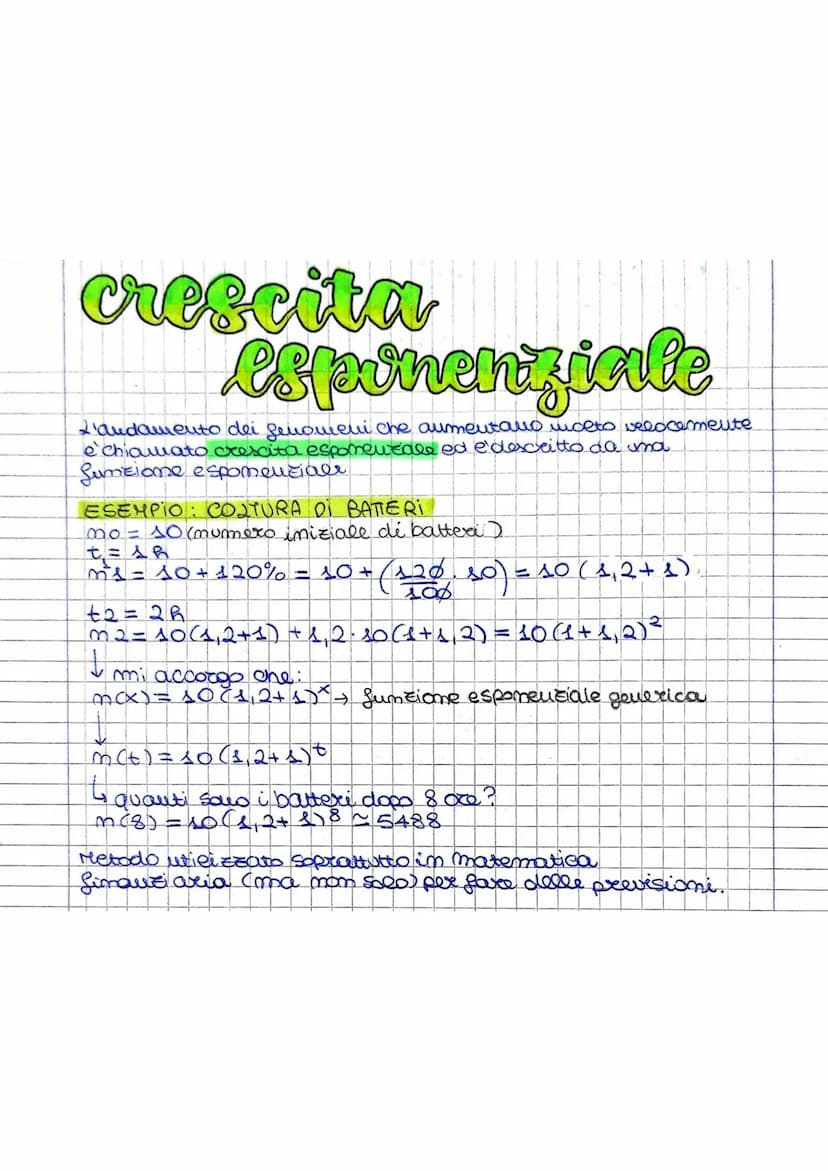 crescita
esponenziale
L'andamento dei fenomeni che aumentano molto velocemente
è chiamato crescita esponenziale ed è descritto da una
funzione esponenziale
ESEMPIO: COLTURA DI BATTERI
n0 = 10 (numero iniziale di batteri)
t1 = 1h
n1 = 10 + 120% = 10 + (120/100 · 10) = 10 (1,2+1)
t2 = 2h
n2 = 10(1,2+1) + 1,2 · 10(1+1,2) = 10(1+1,2)²
↓ mi accorgo che:
n(x) = 10(1,2+1)ˣ → funzione esponenziale generica
↓
n(t) = 10(1,2+1)ᵗ
↳ quanti sono i batteri dopo 8 ore?
n(8) = 10(1,2+1)⁸ ≃ 5488
Metodo utilizzato soprattutto in matematica
finanziaria (ma non solo) per fare delle previsioni.